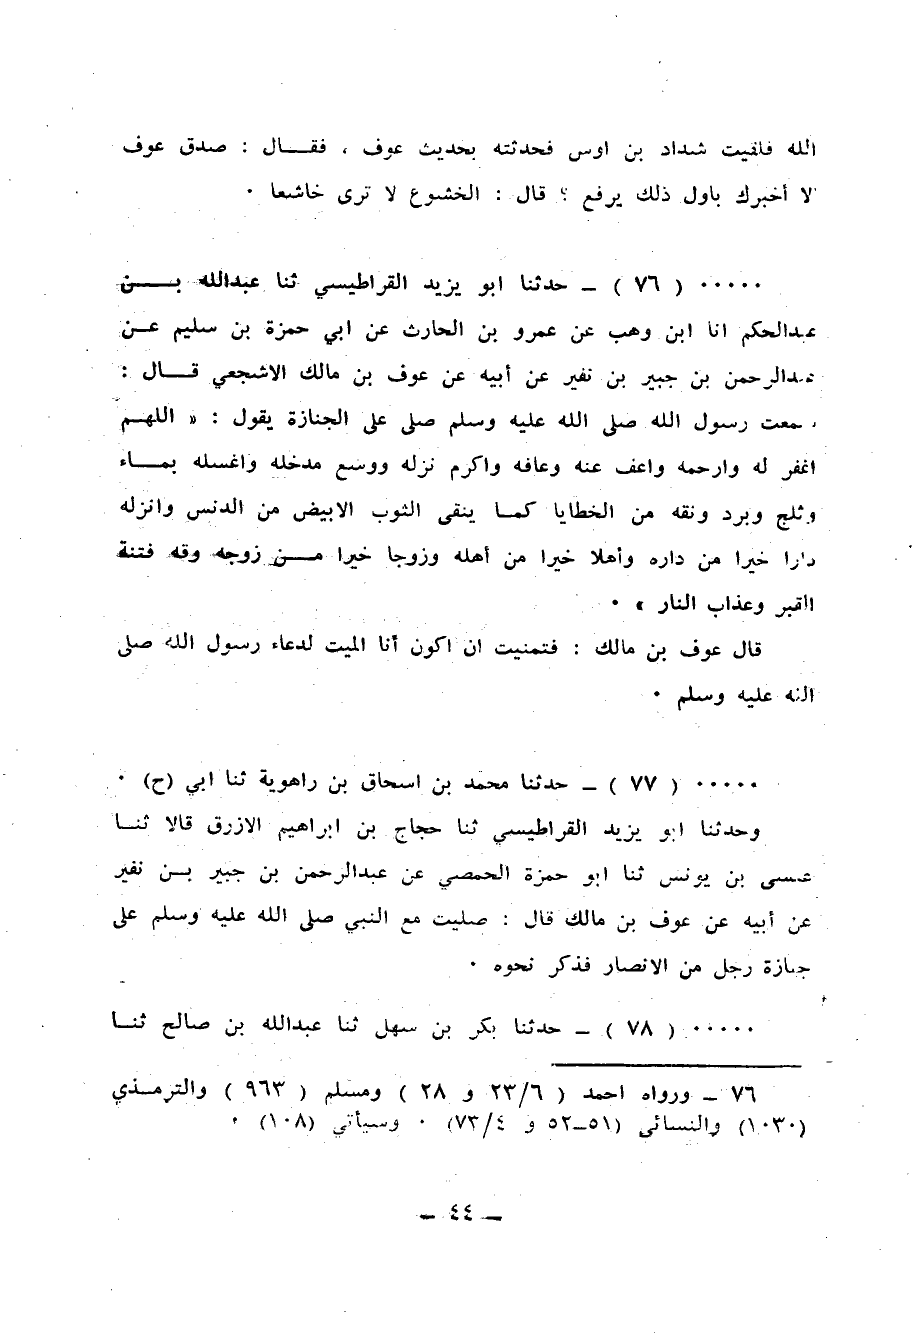 الله فلقيت شداد بن اوس فحدثته بحديث عوف ، فقـــال : صدق عوف
لا أخبرك باول ذلك يرفع ؟ قال : الخشوع لا ترى خاشعا ٠
٠٠٠٠٠ ( ٧٦ ) ــ حدثنا ابو يزيد القراطيسي ثنا عبدالله بـــــن
عبدالحكم انا ابن وهب عن عمرو بن الحارث عن ابي حمزة بن سليم عــن
عبدالرحمن بن جبير بن نفير عن أبيه عن عوف بن مالك الاشجعي قـــال :
سمعت رسول الله صلى الله عليه وسلم صلى على الجنازة يقول : « اللهـم
اغفر له وارحمه واعف عنه وعافه واكرم نزله ووسع مدخله واغسله بمـــاء
وثلج وبرد ونقه من الخطايا كمــا ينقى الثوب الابيض من الدنس وانزله
دارا خيرا من داره وأهلا خيرا من أهله وزوجا خيرا مـــن زوجه وقه فتنة
القبر وعذاب النار » ٠
قال عوف بن مالك : فتمنيت ان اكون أنا الميت لدعاء رسول الله صلى
الله عليه وسلم ٠
٠٠٠٠٠ ( ٧٧ ) ــ حدثنا محمد بن اسحاق بن راهوية ثنا ابي (ح) ٠
وحدثنا ابو يزيد القراطيسي ثنا حجاج بن ابراهيم الازرق قالا ثنــا
عيسى بن يونس ثنا ابو حمزة الحمصي عن عبدالرحمن بن جبير بــن نفير
عن أبيه عن عوف بن مالك قال : صليت مع النبي صلى الله عليه وسلم على
جنازة رجل من الانصار فذكر نحوه ٠
٠٠٠٠٠ ( ٧٨ ) ــ حدثنا بكر بن سهل ثنا عبدالله بن صالح ثنــا
٧٦ ــ ورواه احمد ( ٢٣/٦ و ٢٨ ) ومسلم ( ٩٦٣ ) والترمــذي
(١٠٣٠) والنسائي (٥١ــ٥٢ و ٧٣/٤) ٠ وسيأتي (١٠٨) ٠
ــ ٤٤ ــ